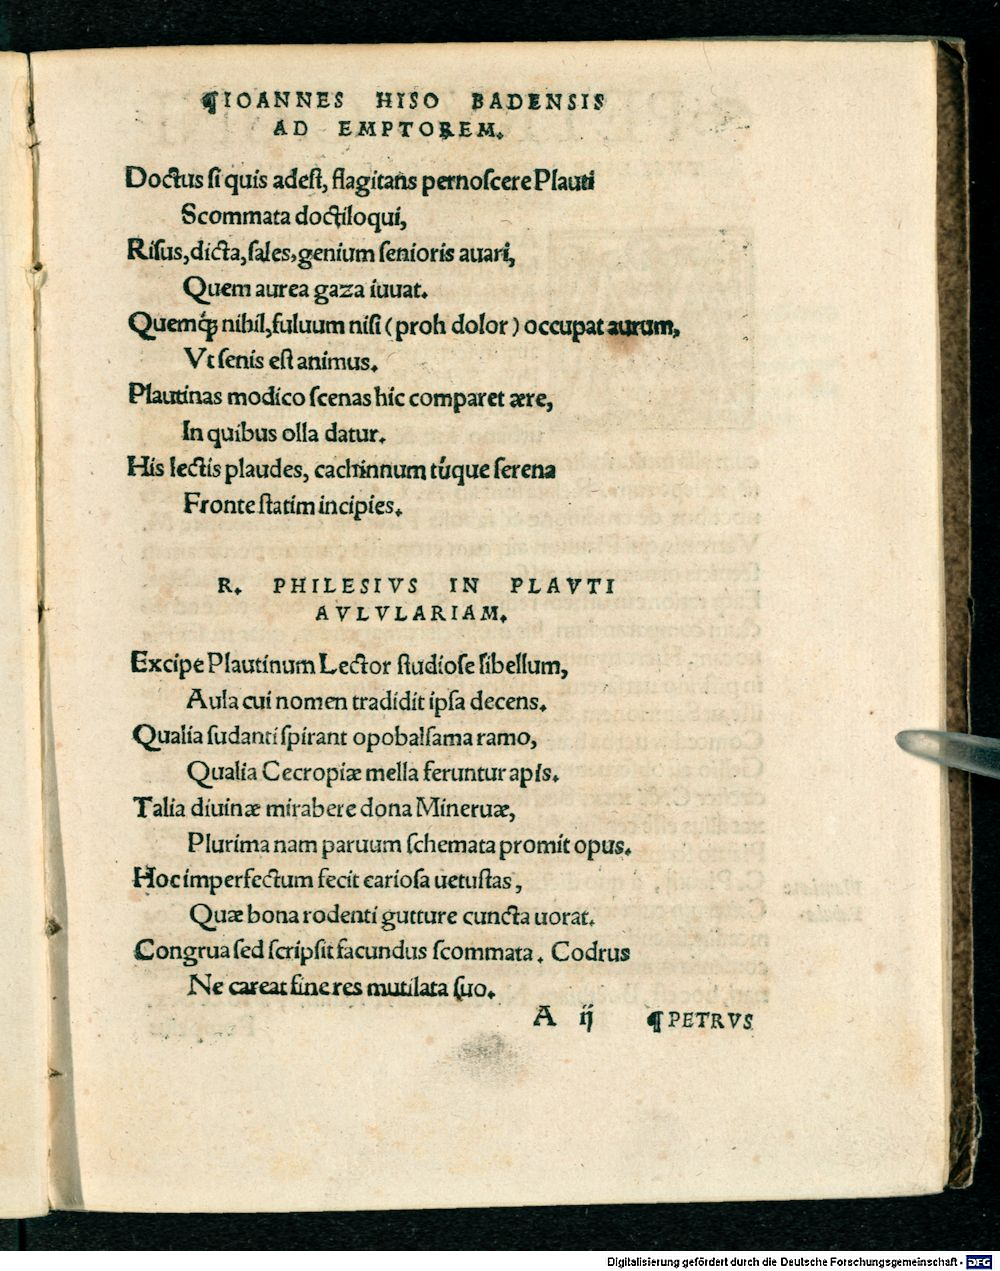 ¶IOANNES HISO BADENSIS
AD EMPTOREM.
Doctus ſi quis adeſt, flagitans pernoſcere Plauti
Scommata doctiloqui,
Riſus, dicta, ſales, genium ſenioris auari,
Quem aurea gaza iuuat.
Quemq́ꝫ nihil, fuluum niſi (proh dolor) occupat aurum,
Vt ſenis eſt animus.
Plautinas modico ſcenas hic comparet ære,
In quibus olla datur.
His lectis plaudes, cachinnum túque ſerena
Fronte ſtatim incipies.
R. PHILESIVS IN PLAVTI
AVLVLARIAM.
Excipe Plautinum Lector ſtudioſe libellum,
Aula cui nomen tradidit ipſa decens.
Qualia ſudanti ſpirant opobalſama ramo,
Qualia Cecropiæ mella feruntur apis.
Talia diuinæ mirabere dona Mineruæ,
Plurima nam paruum ſchemata promit opus.
Hoc imperfectum fecit carioſa uetuſtas,
Quæ bona rodenti gutture cuncta uorat.
Congrua ſed ſcripſit facundus ſcommata. Codrus
Ne careat fine res mutilata ſuo.
A ij ¶PETRVS
Digitalisierung gefördert durch die Deutsche Forschungsgemeinschaft - DFG